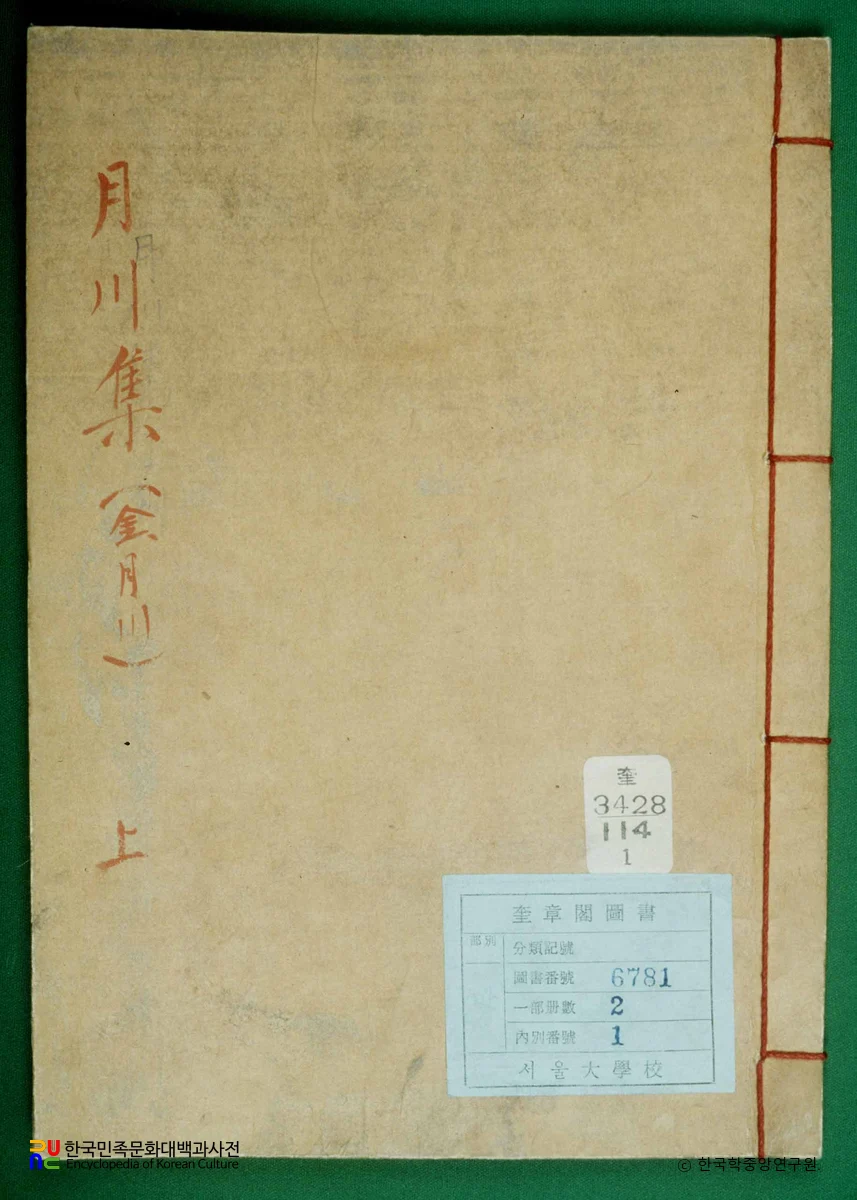 月川集(金月川) 上
奎
3428
114
1
奎章閣圖書
部別
分類記號
圖書番號 6781
一部冊數 2
內別番號 1
서울大學校
한국민족문화대백과사전
Encyclopedia of Korean Culture
© 한국학중앙연구원